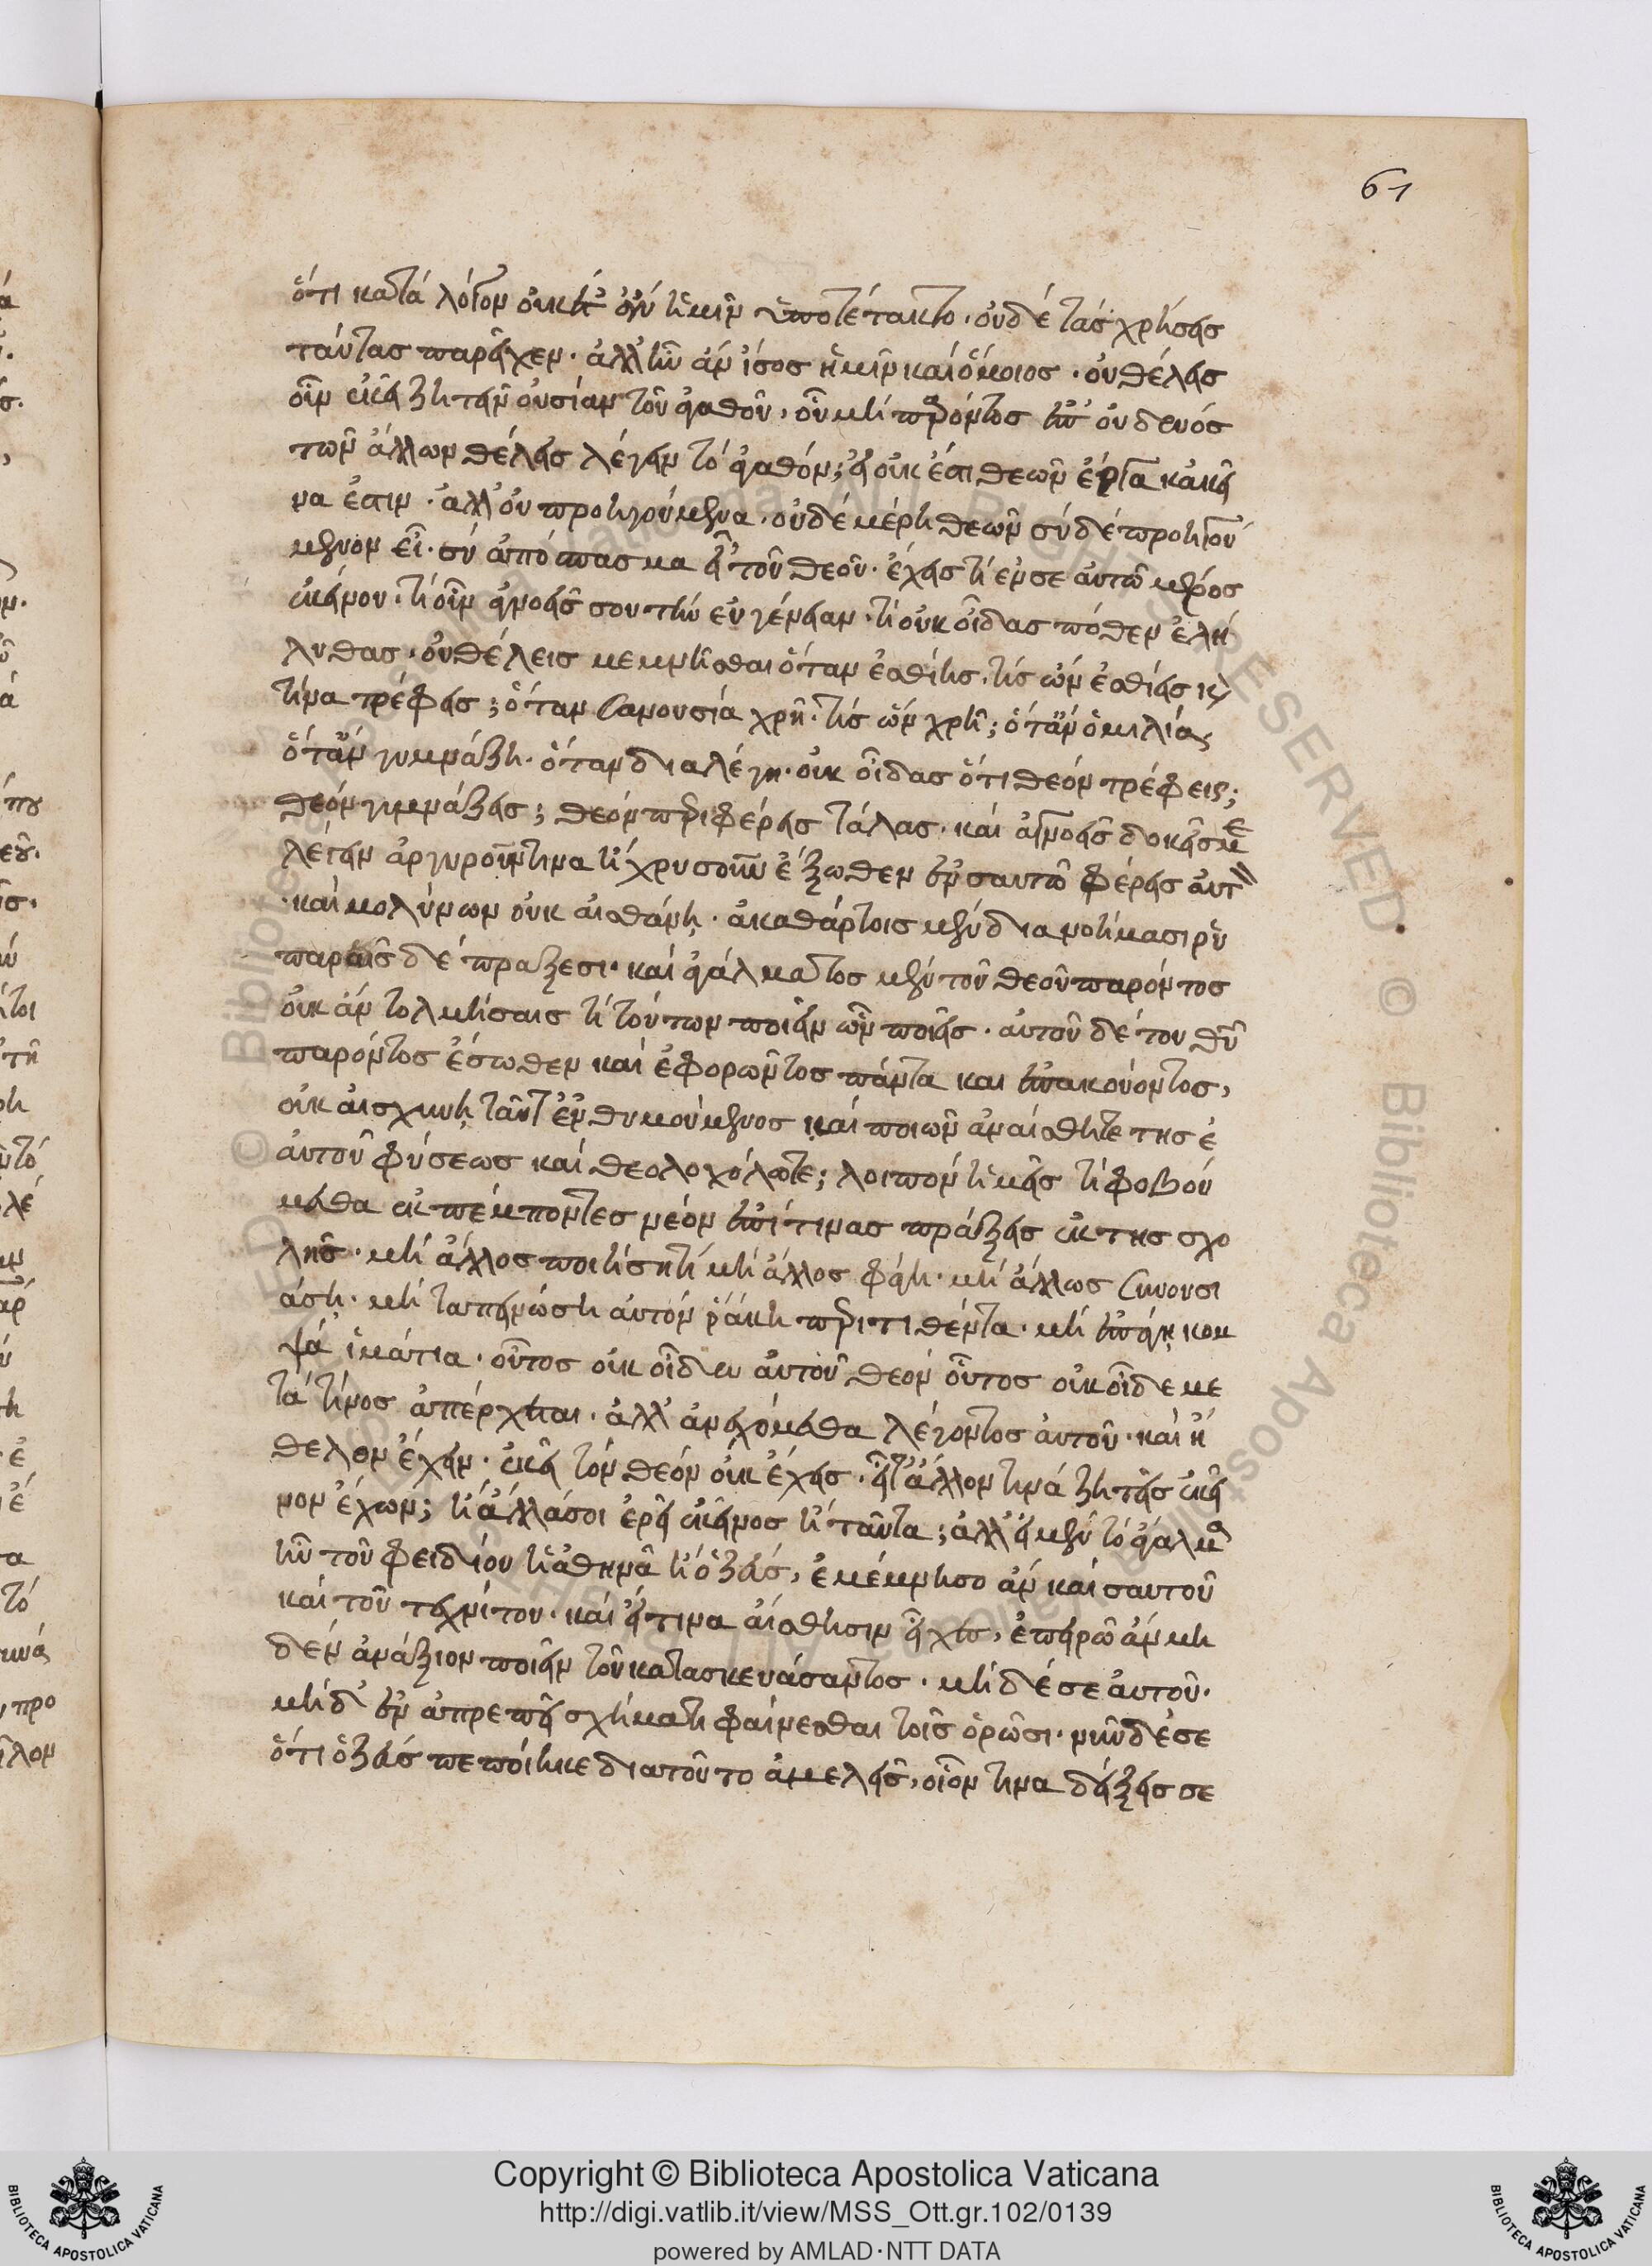 61
ὅτι κατὰ λόγον οὐκέτ' ἂν ἡμῖν ὑποτέτακτο. οὐδὲ τὰς χρήσεις
ταύτας παρεῖχεν. ἀλλ' ἦν ἂν ἴσος ἡμῖν καὶ ὅμοιος. οὐ θέλεις
οὖν ἐκεῖ ζητεῖν οὐσίαν τοῦ ἀγαθοῦ, οὗ μὴ παρόντος ἐπ' οὐδενὸς
τῶν ἄλλων θέλεις λέγειν τὸ ἀγαθόν; τί οὖν οὐκ ἔστι θεῶν ἔργα κἀκεῖ
να ἔστιν. ἀλλ' οὐ προηγούμενα. οὐδὲ μέρη θεῶν σὺ δὲ προηγού
μενον εἶ. σὺ ἀπόσπασμα εἶ τοῦ θεοῦ. ἔχεις τι ἐν σεαυτῷ μέρος
ἐκείνου. τί οὖν ἀγνοεῖς σου τὴν εὐγένειαν. τί οὐκ οἶδας πόθεν ἐλή
λυθας. οὐ θέλεις μεμνῆσθαι ὅταν ἐσθίῃς. τίς ὢν ἐσθίεις καὶ
τίνα τρέφεις; ὅταν συνουσίᾳ χρῇ. τίς ὢν χρῇ; ὅταν ὁμιλίᾳ,
ὅταν γυμνάζῃ. ὅταν διαλέγῃ. οὐκ οἶδας ὅτι θεὸν τρέφεις;
θεὸν γυμνάζεις; θεὸν περιφέρεις τάλας. καὶ ἀγνοεῖς δοκεῖς με
λέγειν ἀργυροῦν τινα ἢ χρυσοῦν ἔξωθεν ἐν σαυτῷ φέρεις αὐτὸν
καὶ μολύνων οὐκ αἰσθάνῃ. ἀκαθάρτοις μὲν διανοήμασι ῥυ
παραῖς δὲ πράξεσι. καὶ ἀγάλματος μὲν τοῦ θεοῦ παρόντος
οὐκ ἂν τολμήσαις τι τούτων ποιεῖν ὧν ποιεῖς. αὐτοῦ δὲ του θῦ
παρόντος ἔσωθεν καὶ ἐφορῶντος πάντα και ἐπακούοντος,
οὐκ αἰσχύνῃ ταῦτ' ἐνθυμούμενος καὶ ποιῶν ἀναίσθητε της ἑ
αυτοῦ φύσεως καὶ θεολοχόλωτε; λοιπὸν ἡμεῖς τί φοβού
μεθα ἐκπέμποντες νέον ἐπί τινας πράξεις ἐκ της σχο
λῆς. μὴ ἄλλος ποιήσῃ τι μὴ ἄλλος φάγῃ. μὴ ἄλλως συνουσι
άσῃ. μὴ ταπεινώσῃ αὐτὸν ῥάκη περιτιθέντα. μὴ ἐπαίρῃ κομ
ψὰ ἱμάτια. οὗτος οὐκ οἶδεν αὐτοῦ θεὸν οὗτος οὐκ οἶδε με
τά τίνος ἀπέρχεται. ἀλλ' ἀνεχόμεθα λέγοντος αὐτοῦ. καὶ ἤ
θελον ἔχειν. ἐκεῖ τὸν θεὸν οὐκ ἔχεις. εἶτ' ἄλλον τινὰ ζητεῖς ἐκεῖ
νον ἔχων; ἢ ἄλλα σοι ἐρεῖ ἐκεῖνος ἢ ταῦτα; ἀλλ' εἰ μὲν τὸ ἄγαλμα
ἦν τοῦ φειδίου ἡ ἀθηνᾶ ἢ ὁ ζεὺς, ἐμέμνησο ἂν καὶ σαυτοῦ
καὶ τοῦ τεχνίτου. καὶ εἴ τινα αἴσθησιν εἶχες, ἐπειρῶ ἂν μη
δὲν ἀνάξιον ποιεῖν τοῦ κατασκευάσαντος. μὴ δὲ σεαυτοῦ.
μὴ δ' ἐν ἀπρεπεῖ σχήματι φαίνεσθαι τοῖς ὁρῶσι. νῦν δέ σε
ὅτι ὁ ζεὺς πεποίηκε διατοῦτο ἀμελεῖς, οἷόν τινα δείξεις σε
Copyright © Biblioteca Apostolica Vaticana
http://digi.vatlib.it/view/MSS_Ott.gr.102/0139
powered by AMLAD·NTT DATA
BIBLIOTECA APOSTOLICA VATICANA
BIBLIOTECA APOSTOLICA VATICANA